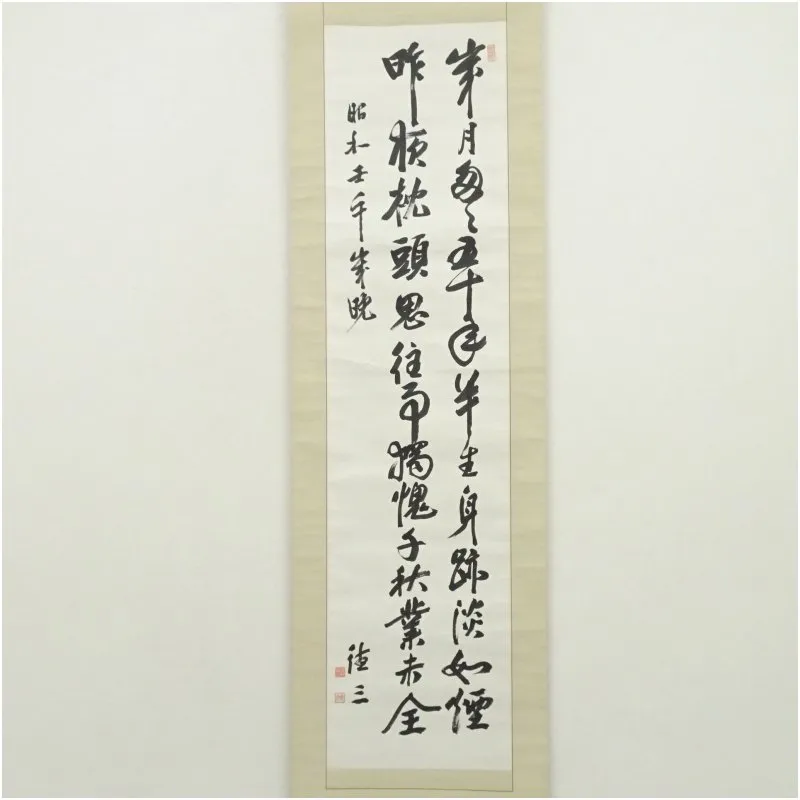 歳月匆〻五十年半生身跡淡如煙
昨夜枕頭思往事獨愧千秋業未全
昭和壬午歳晩
徳三